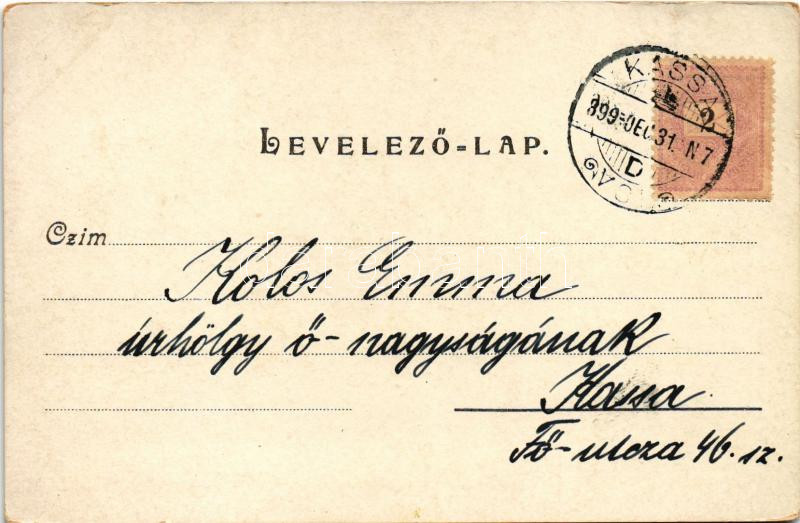 KASSA
899 DEC. 31. N 7
D
LEVELEZŐ-LAP.
Czim
Kolos Emma
úrhölgy ő-nagyságának
Kassa
Fő-utcza 46. sz.